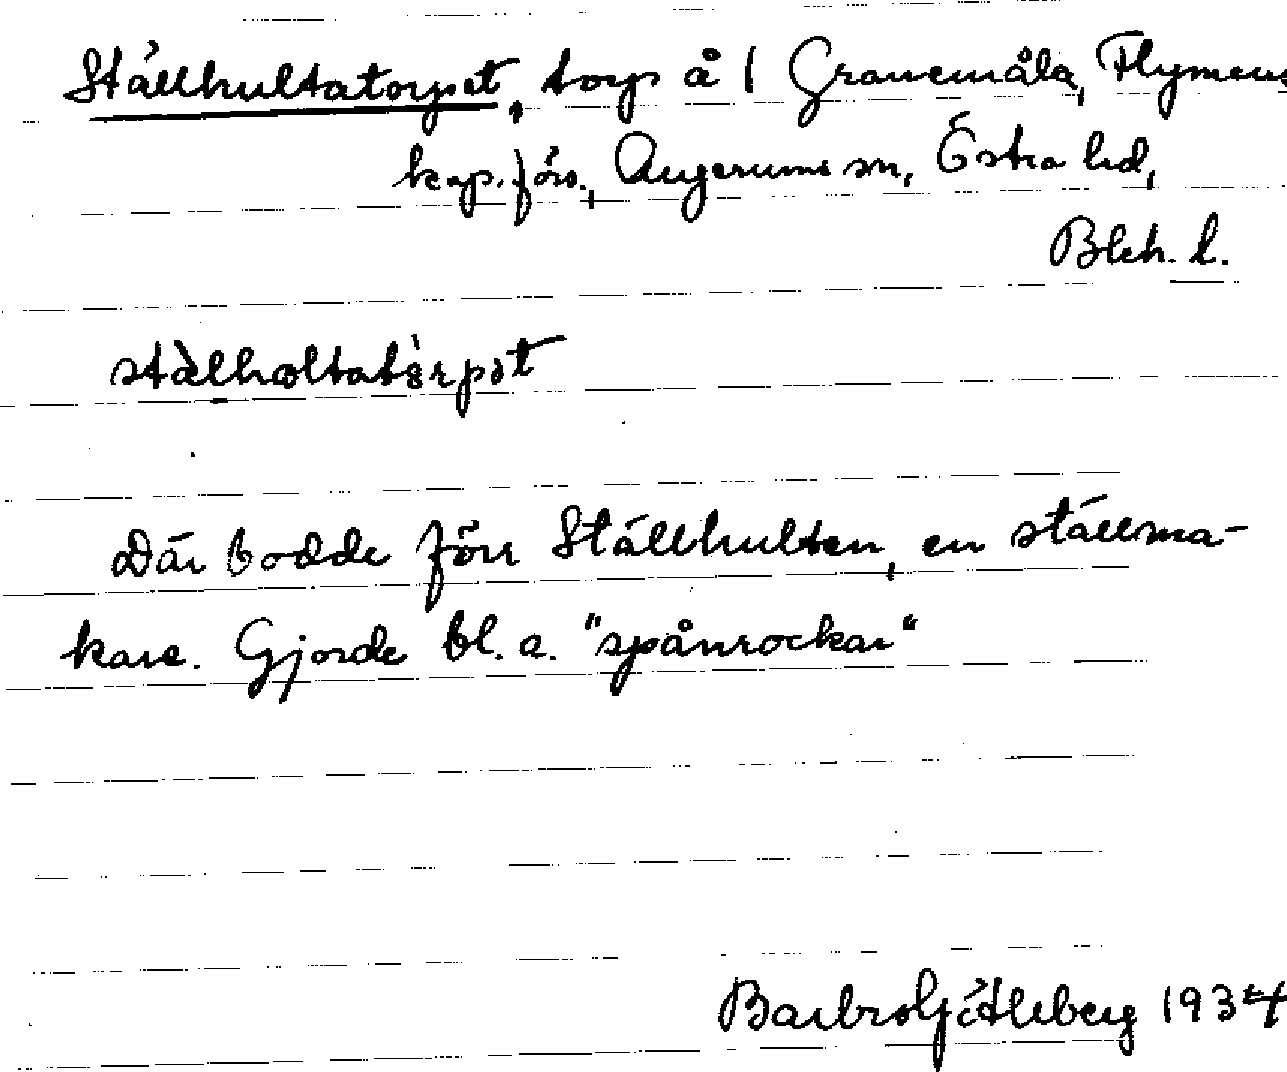 Ställhultatorpet, torp å 1 Granemåla, Flymens
kap.förs., Augerums sn, Östra hd,
Blek. l.
stàlholtatårpət
Där bodde förr Ställhulten, en ställma-
kare. Gjorde bl. a. "spånrockar"
Barbro 1934